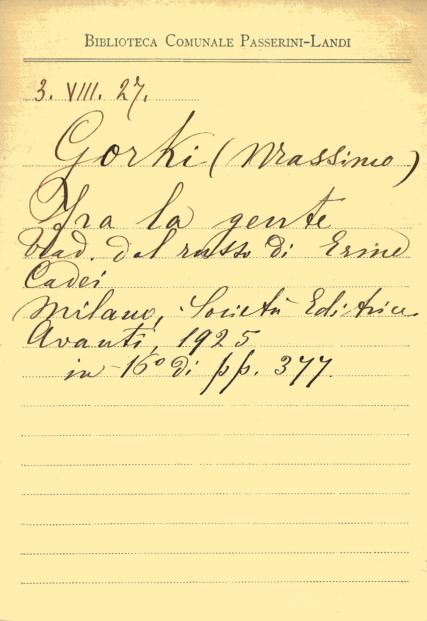 BIBLIOTECA COMUNALE PASSERINI-LANDI
3. VIII. 27.
Gorki (Massimo)
Fra la gente
Trad. dal russo di Erme
Cadei
Milano, Società Editrice
Avanti, 1925
in 16º di pp. 377.